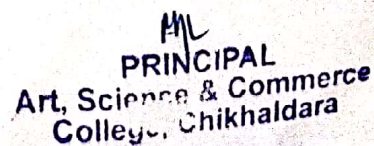 PRINCIPAL
Art, Science & Commerce
College, Chikhaldara